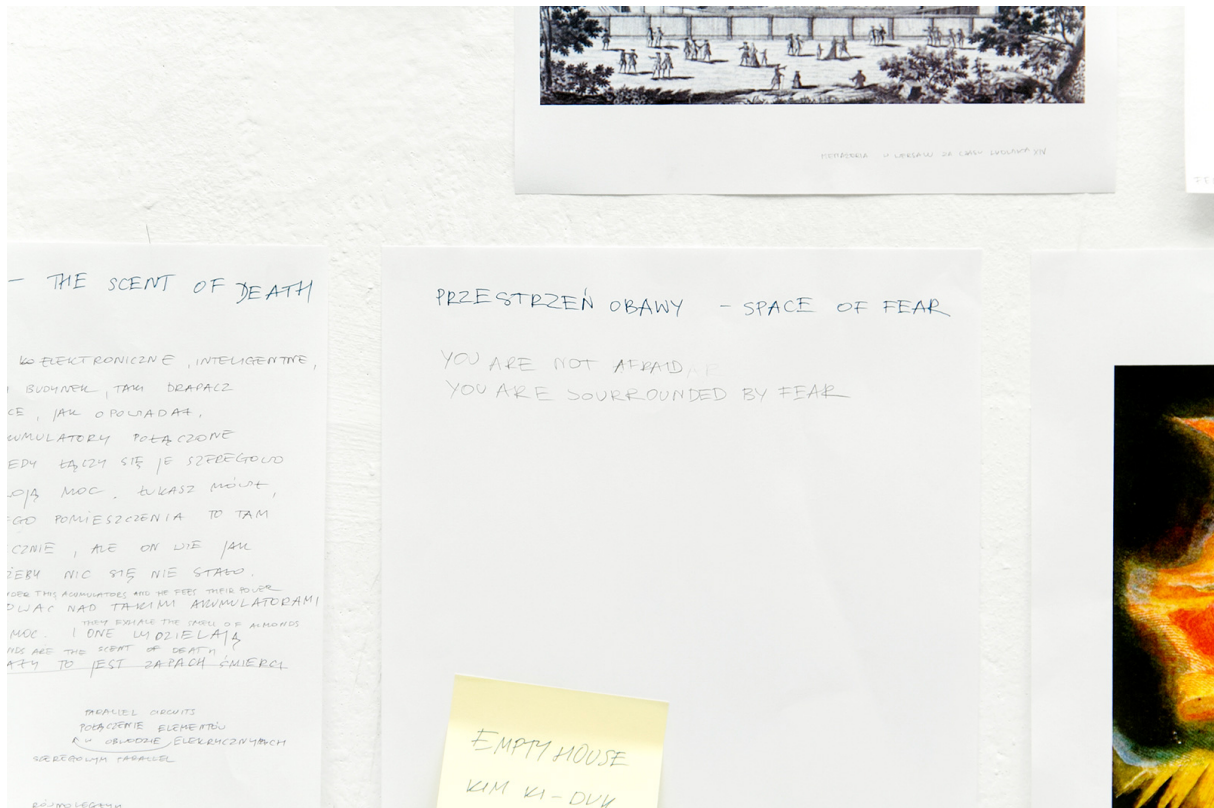 MENAŻERIA W WERSALU ZA CZASÓW LUDWIKA XIV
— THE SCENT OF DEATH
ELEKTRONICZNE, INTELIGENTNE,
BUDYNEK, TAKI DRAPACZ
JAK OPOWIADAŁ,
KUMULATORY POŁĄCZONE
EDY ŁĄCZY SIĘ JE SZEREGOWO
OJĄ MOC. ŁUKASZ MÓWIŁ,
EGO POMIESZCZENIA TO TAM
CZNIE, ALE ON WIE JAK
ŻEBY NIC SIĘ NIE STAŁO.
THIS ACUMULATORS AND HE FEELS THEIR POWER
OWAĆ NAD TAKIMI AKUMULATORAMI
THEY EXHALE THE SMELL OF ALMONDS
MOC. I ONE WYDZIELAJĄ
NDS ARE THE SCENT OF DEATH
TO JEST ZAPACH ŚMIERCI
PARALLEL CIRCUITS
POŁĄCZENIE ELEMENTÓW
W OBWODZIE ELEKRYCZNYMCH
SZEREGOWYM PARALLEL
RÓWNOLEGŁYM
PRZESTRZEŃ OBAWY – SPACE OF FEAR
YOU ARE NOT AFRAID
YOU ARE SOURROUNDED BY FEAR
EMPTY HOUSE
KIM KI-DUK